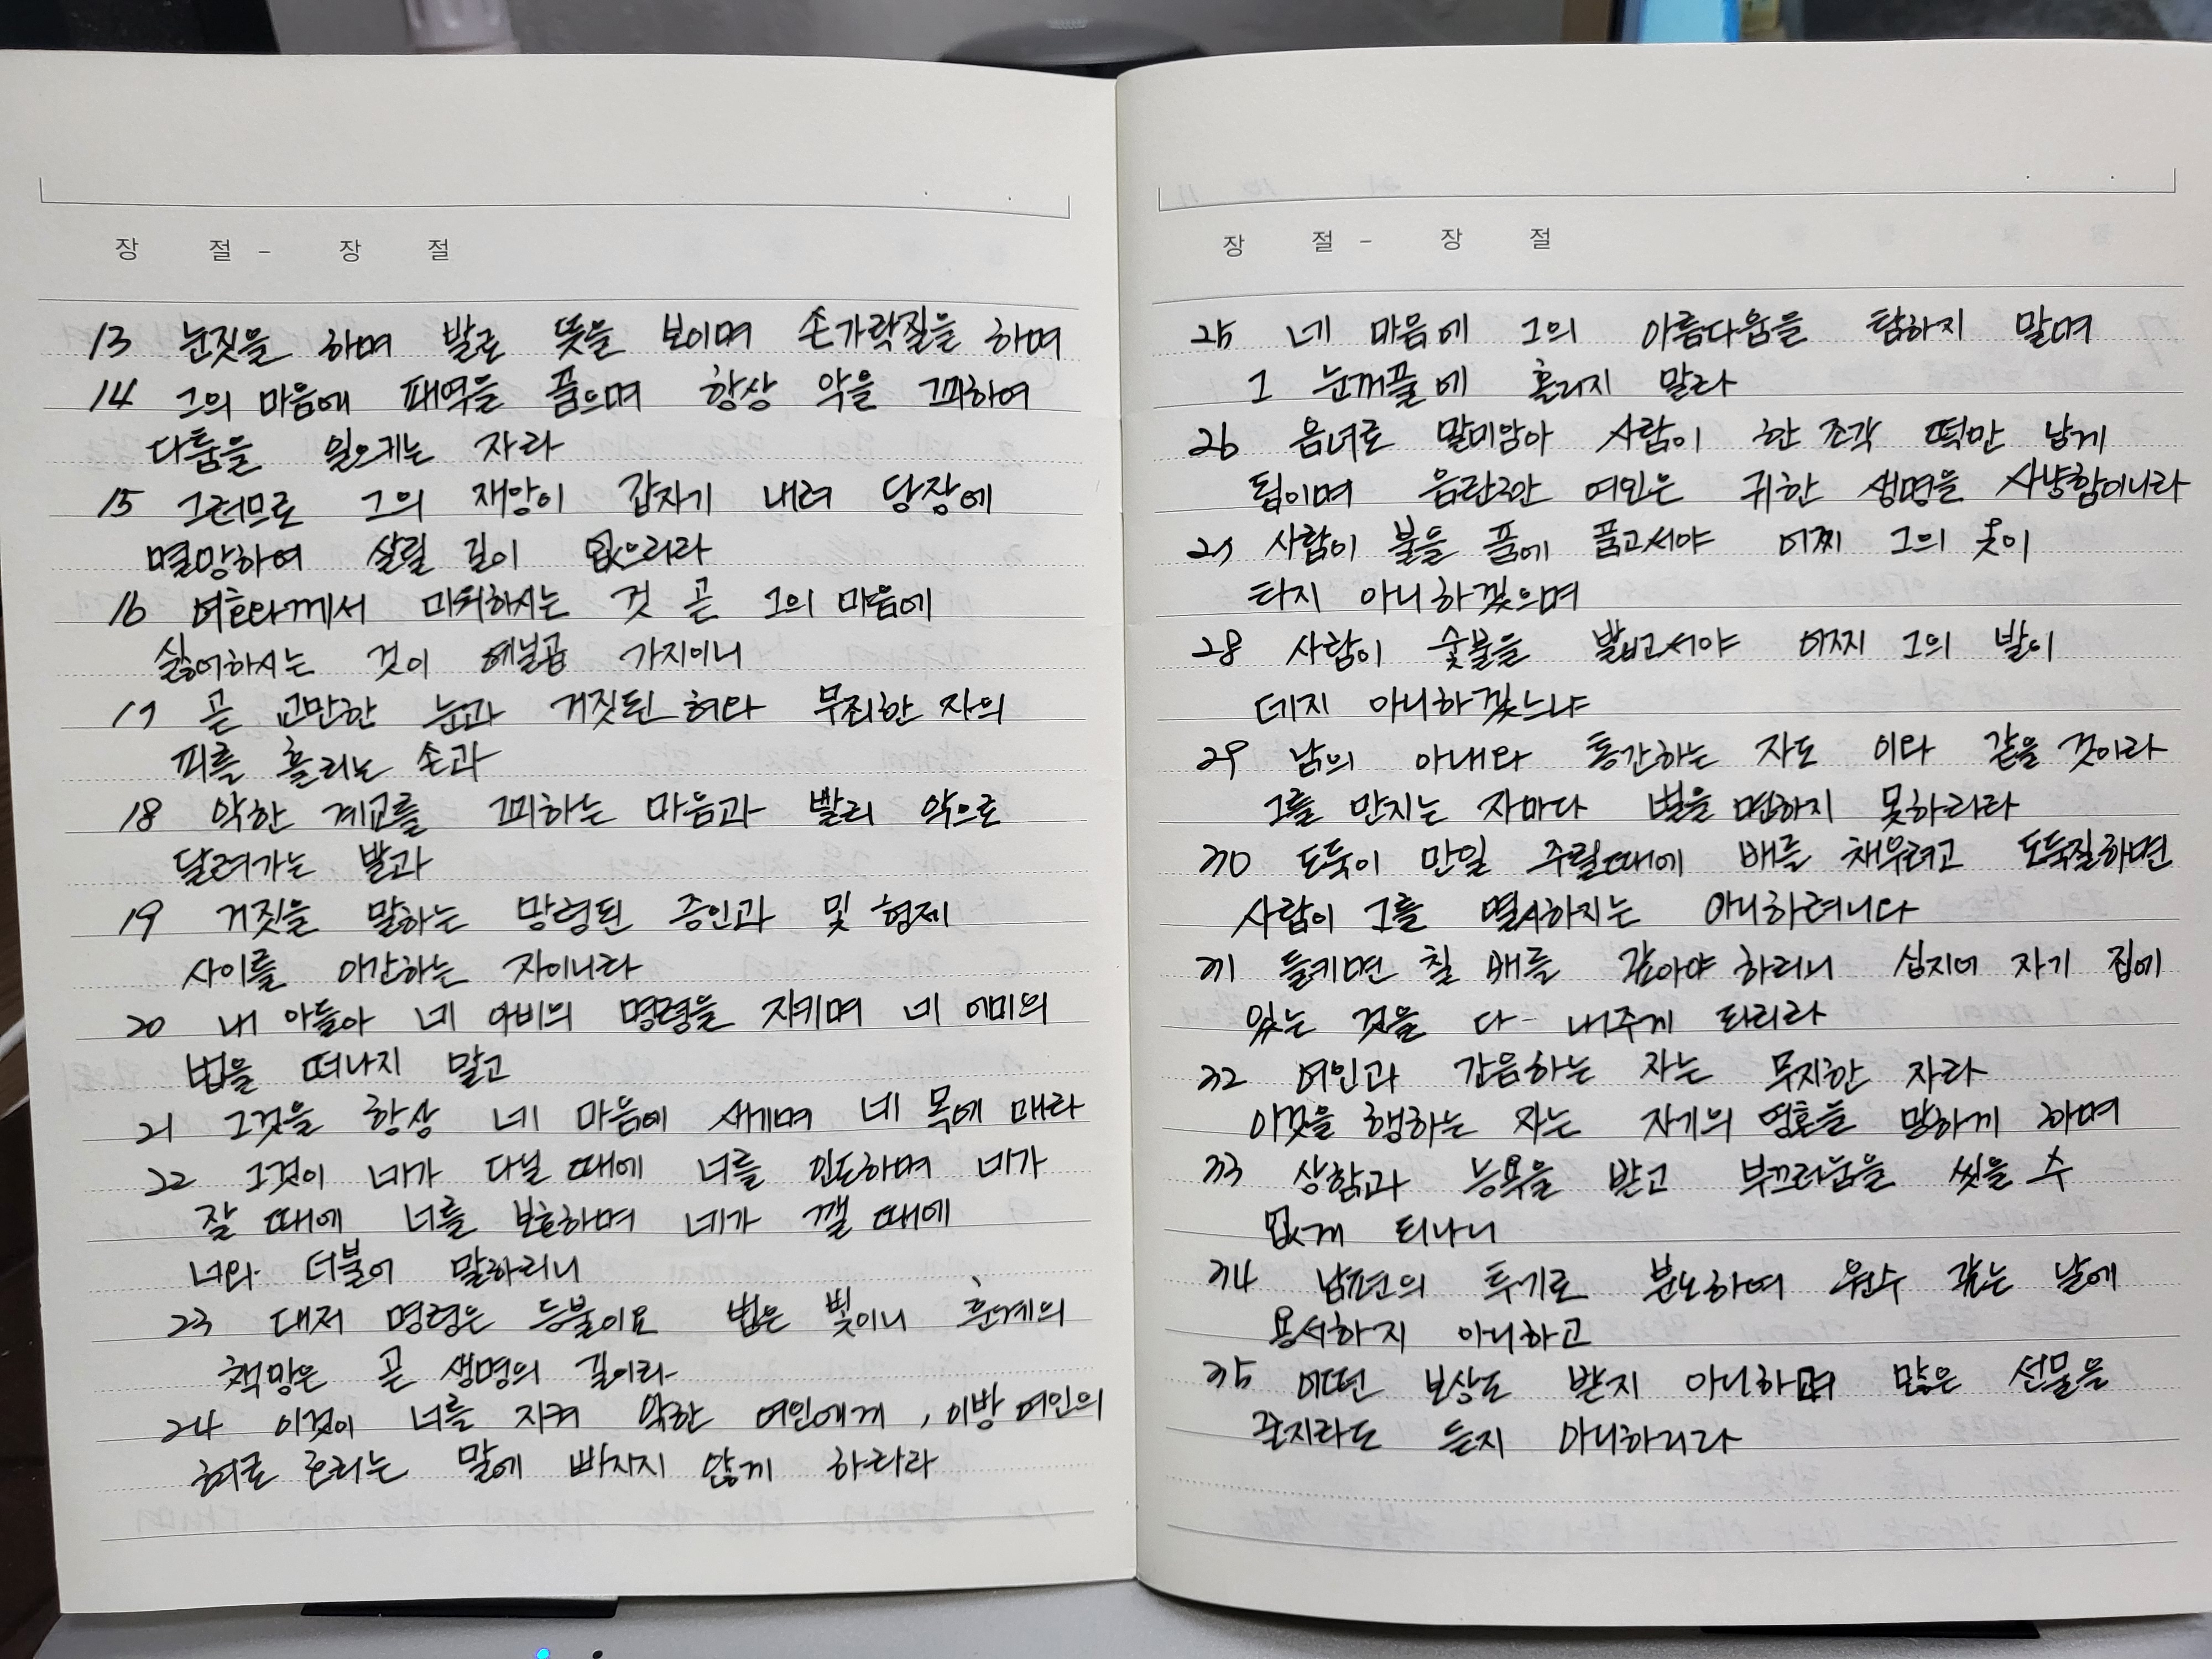 장 절 - 장 절
13 눈짓을 하며 발로 뜻을 보이며 손가락질을 하며
14 그의 마음에 패역을 품으며 항상 악을 꾀하여
다툼을 일으키는 자라
15 그러므로 그의 재앙이 갑자기 내려 당장에
멸망하여 살릴 길이 없으리라
16 여호와께서 미워하시는 것 곧 그의 마음에
싫어하시는 것이 예닐곱 가지이니
17 곧 교만한 눈과 거짓된 혀와 무죄한 자의
피를 흘리는 손과
18 악한 계교를 꾀하는 마음과 빨리 악으로
달려가는 발과
19 거짓을 말하는 망령된 증인과 및 형제
사이를 이간하는 자이니라
20 내 아들아 네 아비의 명령을 지키며 네 어미의
법을 떠나지 말고
21 그것을 항상 네 마음에 새기며 네 목에 매라
22 그것이 네가 다닐 때에 너를 인도하며 네가
잘 때에 너를 보호하며 네가 깰 때에
너와 더불어 말하리니
23 대저 명령은 등불이요 법은 빛이니 훈계의
책망은 곧 생명의 길이라
24 이것이 너를 지켜 악한 여인에게, 이방 여인의
혀로 호리는 말에 빠지지 않게 하리라
장 절 - 장 절
25 네 마음에 그의 아름다움을 탐하지 말며
그 눈꺼풀에 홀리지 말라
26 음녀로 말미암아 사람이 한 조각 떡만 남게
됨이며 음란한 여인은 귀한 생명을 사냥함이니라
27 사람이 불을 품에 품고서야 어찌 그의 옷이
타지 아니하겠으며
28 사람이 숯불을 밟고서야 어찌 그의 발이
데지 아니하겠느냐
29 남의 아내와 통간하는 자도 이와 같을 것이라
그를 만지는 자마다 벌을 면하지 못하리라
30 도둑이 만일 주릴때에 배를 채우려고 도둑질하면
사람이 그를 멸시하지는 아니하려니다
31 들키면 칠 배를 갚아야 하리니 심지어 자기 집에
있는 것을 다 내주게 되리라
32 여인과 간음하는 자는 무지한 자라
이것을 행하는 자는 자기의 영혼을 망하게 하며
33 상함과 능욕을 받고 부끄러움을 씻을 수
없게 되나니
34 남편의 투기로 분노하여 원수 갚는 날에
용서하지 아니하고
35 어떤 보상도 받지 아니하며 많은 선물을
줄지라도 듣지 아니하리라